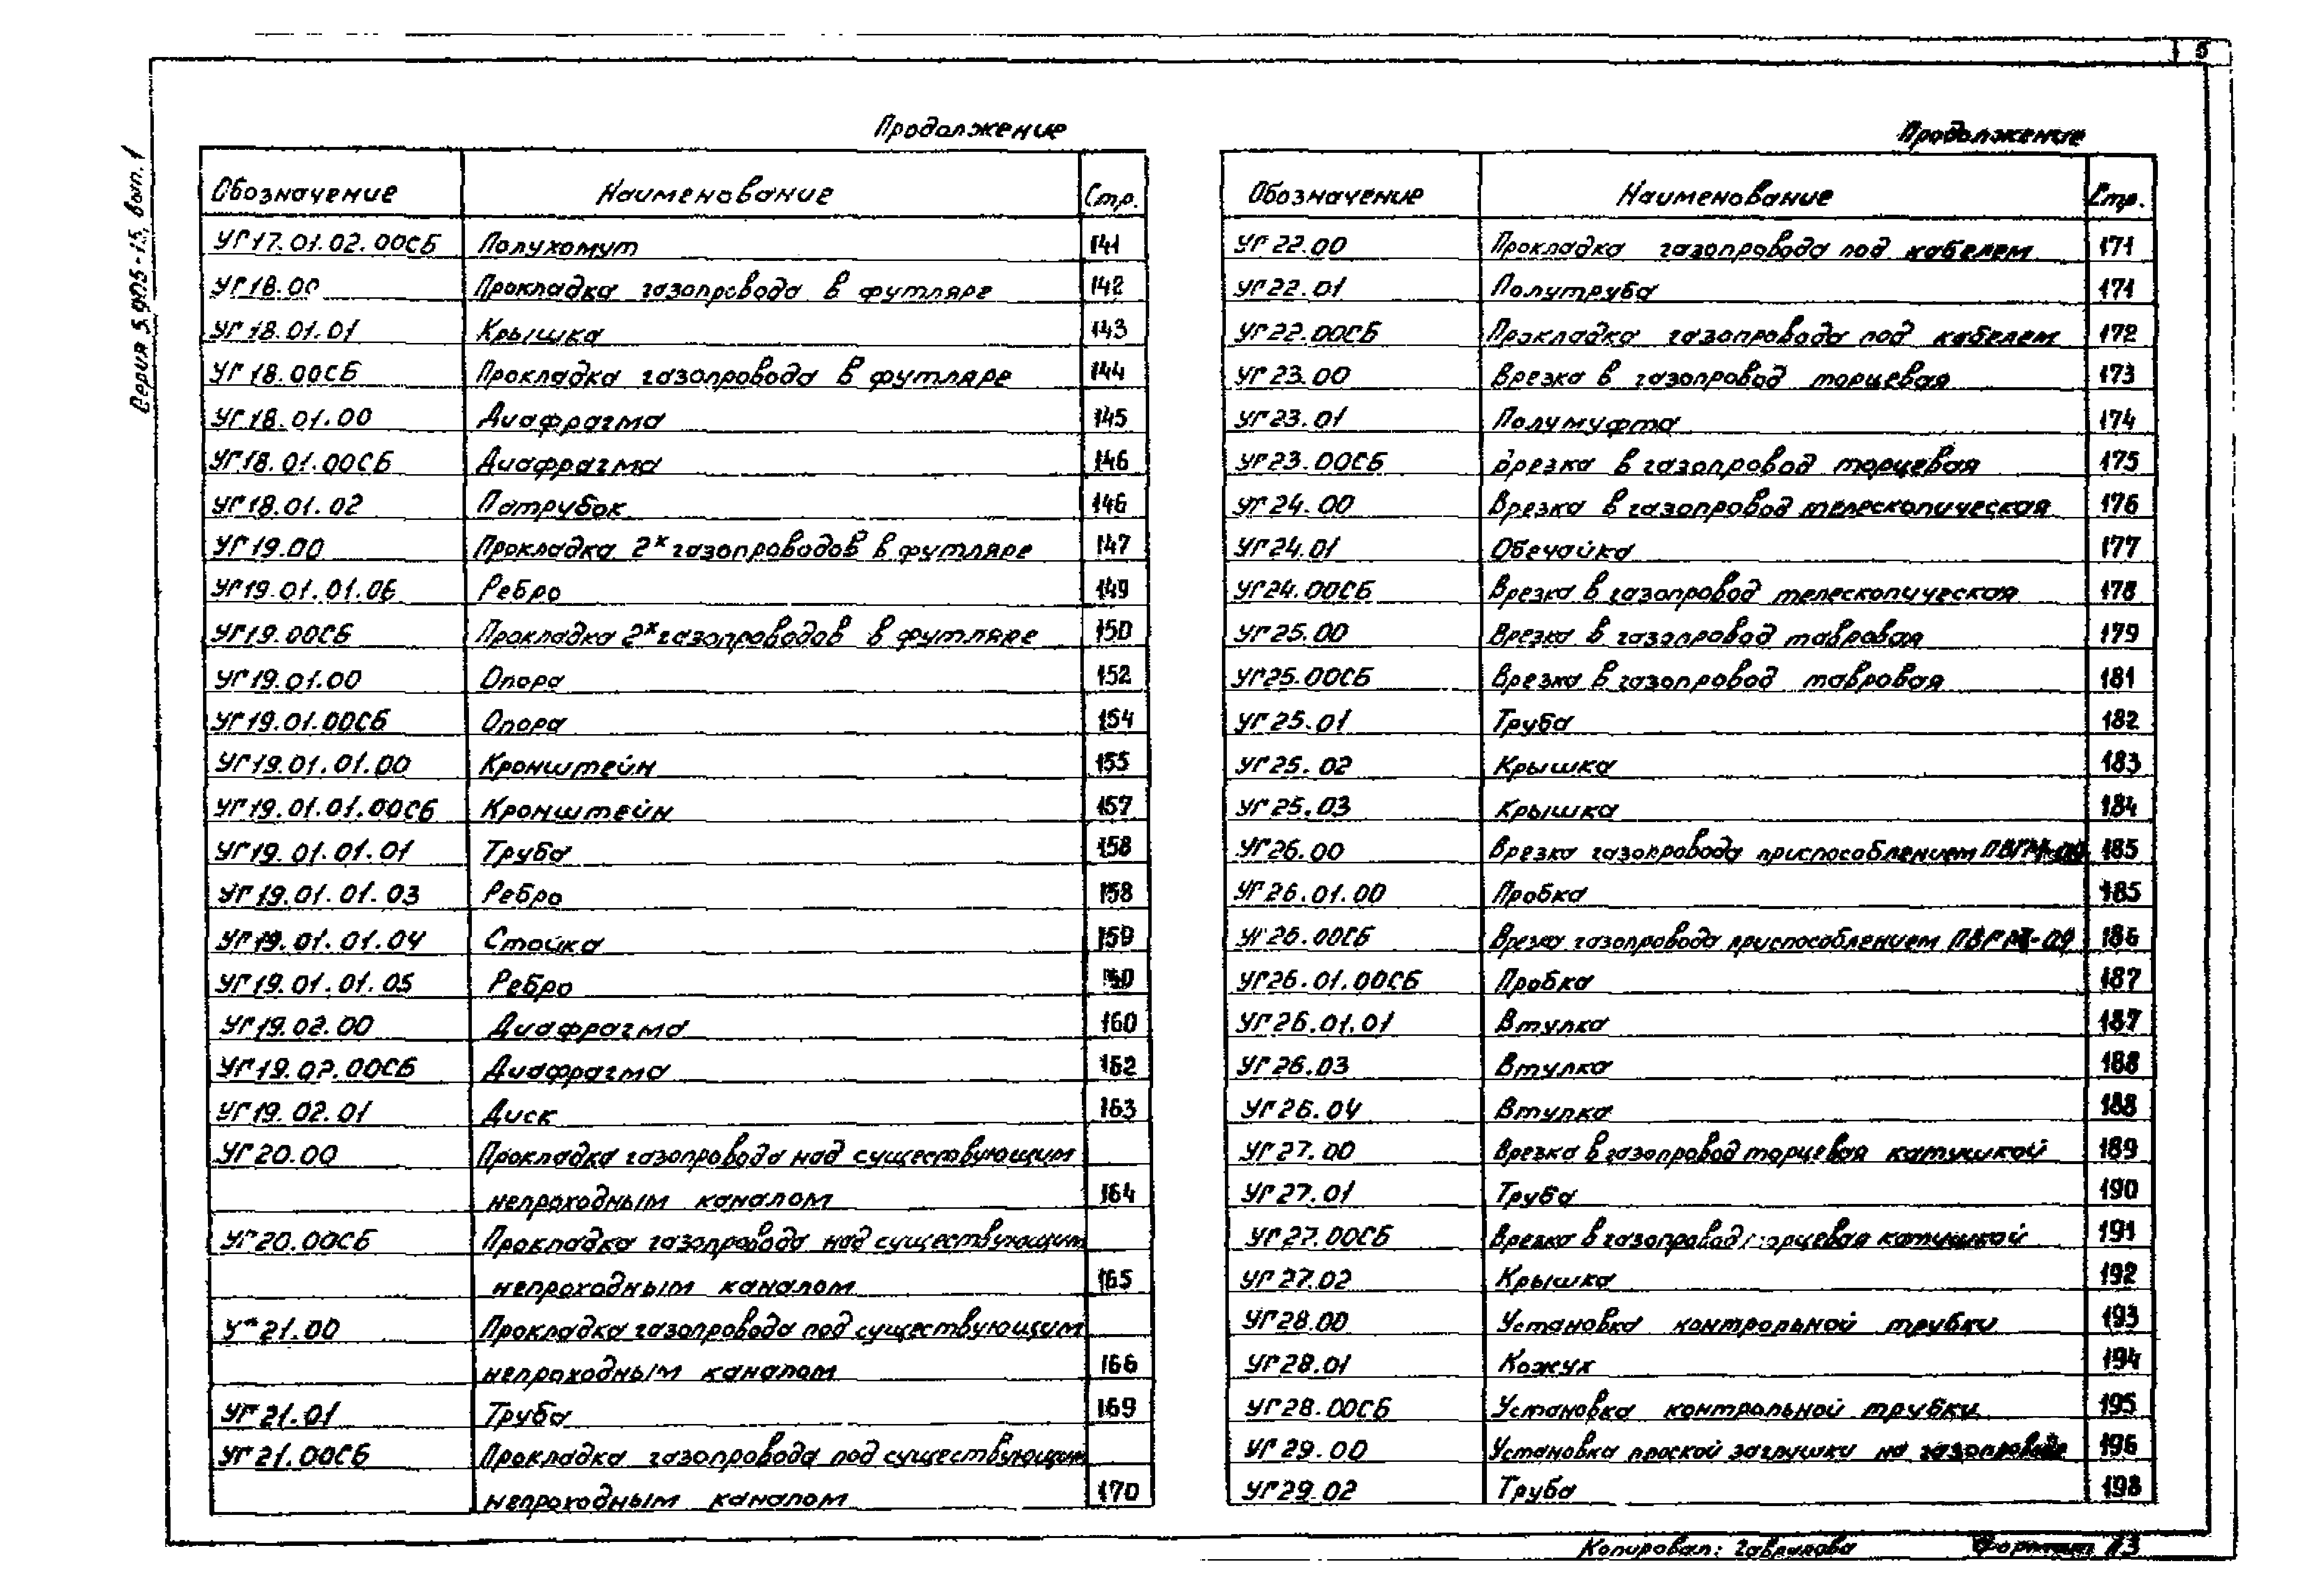 5
Серия 5.905-15, вып. 1
Продолжение
Обозначение Наименование Стр.
УГ17.01.02.00СБ Полухомут 141
УГ18.00 Прокладка газопровода в футляре 142
УГ18.01.01 Крышка 143
УГ18.00СБ Прокладка газопровода в футляре 144
УГ18.01.00 Диафрагма 145
УГ18.01.00СБ Диафрагма 146
УГ18.01.02 Патрубок 146
УГ19.00 Прокладка 2х газопроводов в футляре 147
УГ19.01.01.06 Ребро 149
УГ19.00СБ Прокладка 2х газопроводов в футляре 150
УГ19.01.00 Опора 152
УГ19.01.00СБ Опора 154
УГ19.01.01.00 Кронштейн 155
УГ19.01.01.00СБ Кронштейн 157
УГ19.01.01.01 Труба 158
УГ19.01.01.03 Ребро 158
УГ19.01.01.04 Стойка
УГ19.01.01.05 Ребро
УГ19.02.00 Диафрагма 160
УГ19.02.00СБ Диафрагма 162
УГ19.02.01 Диск 163
УГ20.00 Прокладка газопровода над существующим
непроходным каналом 164
УГ20.00СБ Прокладка газопровода над существующим
непроходным каналом 165
УГ21.00 Прокладка газопровода под существующим
непроходным каналом 166
УГ21.01 Труба 169
УГ21.00СБ Прокладка газопровода под существующим
непроходным каналом 170
Продолжение
Обозначение Наименование Стр.
УГ22.00 Прокладка газопровода под кабелем 171
УГ22.01 Полутруба 171
УГ22.00СБ Прокладка газопровода под кабелем 172
УГ23.00 Врезка в газопровод торцевая 173
УГ23.01 Полумуфта 174
УГ23.00СБ Врезка в газопровод торцевая 175
УГ24.00 Врезка в газопровод телескопическая 176
УГ24.01 Обечайка 177
УГ24.00СБ Врезка в газопровод телескопическая 178
УГ25.00 Врезка в газопровод тавровая 179
УГ25.00СБ Врезка в газопровод тавровая 181
УГ25.01 Труба 182
УГ25.02 Крышка 183
УГ25.03 Крышка 184
УГ26.00 Врезка газопровода приспособлением 185
УГ26.01.00 Пробка 185
УГ26.00СБ Врезка газопровода приспособлением 186
УГ26.01.00СБ Пробка 187
УГ26.01.01 Втулка 187
УГ26.03 Втулка 188
УГ26.04 Втулка 188
УГ27.00 Врезка в газопровод торцевая катушкой 189
УГ27.01 Труба 190
УГ27.00СБ Врезка в газопровод торцевая катушкой 191
УГ27.02 Крышка 192
УГ28.00 Установка контрольной трубки 193
УГ28.01 Кожух 194
УГ28.00СБ Установка контрольной трубки 195
УГ29.00 Установка плоской заглушки на газопроводе 196
УГ29.02 Труба 198
Копировал: Гаврилова Формат А3